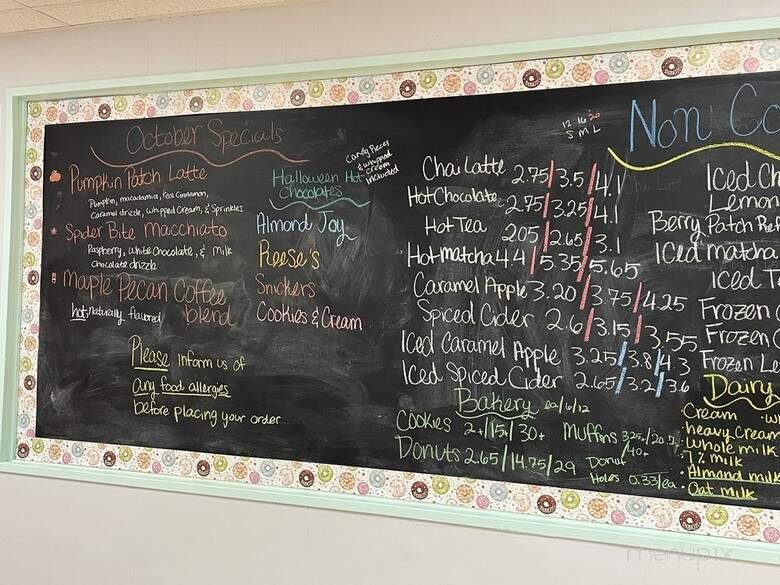 October Specials
Pumpkin Patch Latte
Pumpkin, macadamia, real cinnamon,
Caramel drizzle, whipped cream, & Sprinkles
Spider Bite Macchiato
Raspberry, white chocolate, & milk
Chocolate drizzle
Maple Pecan Coffee
hot, naturally flavored blend
Please inform us of
any food allergies
before placing your order
Halloween Hot
Chocolates
Candy Pieces
& whipped
cream
included
Almond Joy
Reese's
Snickers
Cookies & Cream
12 16 20
S M L
Chai Latte 2.75/3.5/4.1
Hot Chocolate 2.75/3.25/4.1
Hot Tea 2.05/2.65/3.1
Hot matcha 4.4/5.35/5.65
Caramel Apple 3.20/3.75/4.25
Spiced Cider 2.6/3.15/3.55
Iced Caramel Apple 3.25/3.8/4.3
Iced Spiced Cider 2.65/3.2/3.6
Bakery ea/6/12
Cookies 2+/15+/30+
Donuts 2.65/14.75/29
Muffins 3.25+/20
/40+
Donut
Holes 0.33/ea
Non Co
Iced Ch
Lemon
Berry Patch Ref
Iced matcha
Iced T
Frozen
Frozen
Frozen Le
Dairy
Cream
heavy cream
whole milk
1% milk
Almond milk
Oat milk
menupix